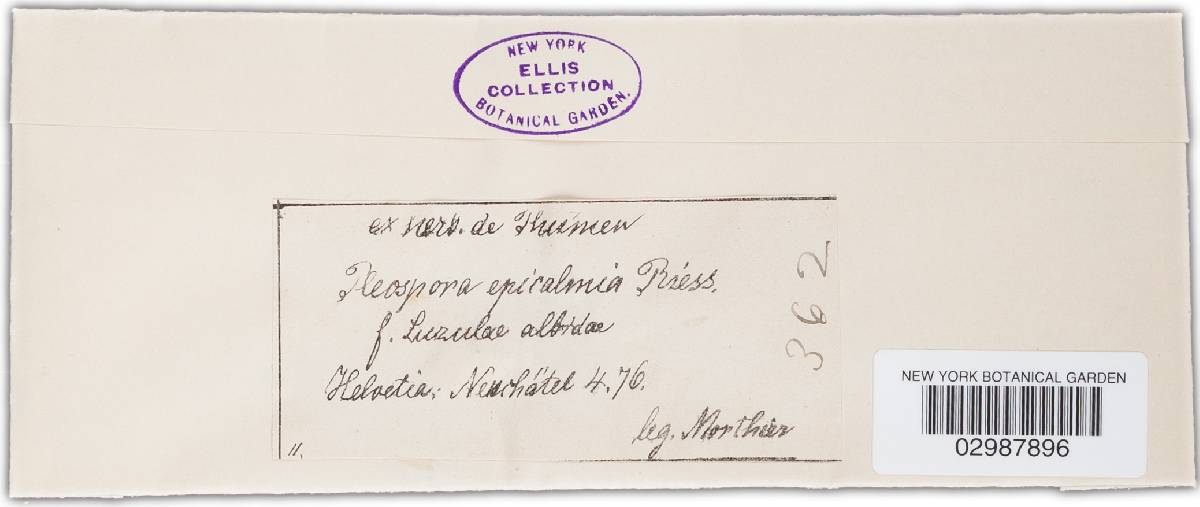 NEW YORK
ELLIS
COLLECTION
BOTANICAL GARDEN.
ex herb. de Thümen
Pleospora epicalmia Riess.
f. Luzulae albidae
Helvetia: Neuchâtel 4.76.
leg. Morthier
11.
362
NEW YORK BOTANICAL GARDEN
02987896